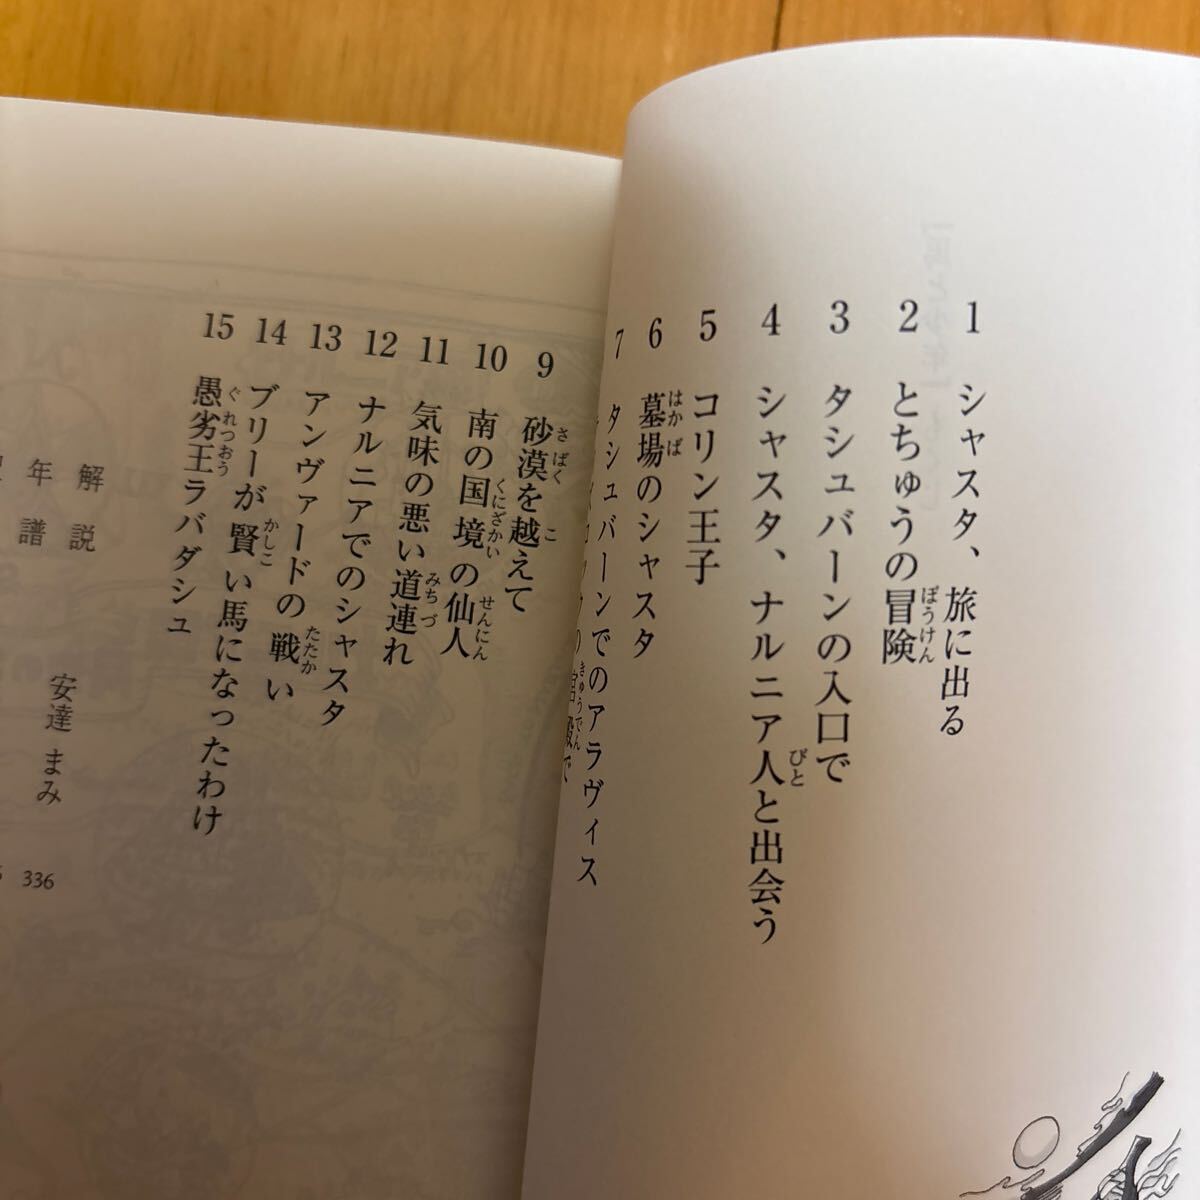 1 シャスタ、旅に出る
2 とちゅうの冒険
3 タシュバーンの入口で
4 シャスタ、ナルニア人と出会う
5 コリン王子
6 墓場のシャスタ
7 タシュバーンでのアラヴィス
の宮殿で
9 砂漠を越えて
10 南の国境の仙人
11 気味の悪い道連れ
12 ナルニアでのシャスタ
13 アンヴァードの戦い
14 ブリーが賢い馬になったわけ
15 愚劣王ラバダシュ
解説 安達まみ 336
年譜